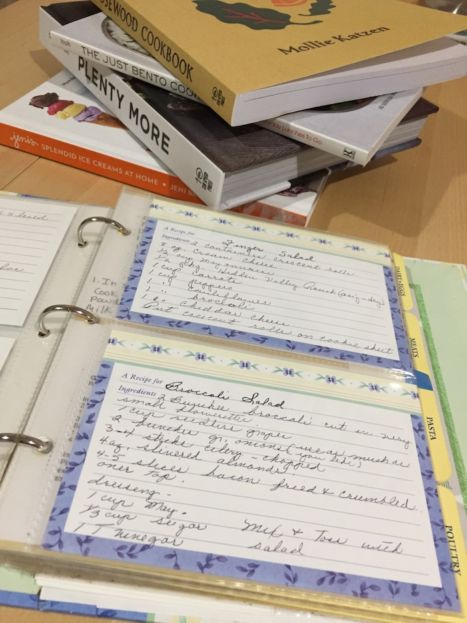 ROSEWOOD COOKBOOK
Mollie Katzen
THE JUST BENTO COO
PLENTY MORE
jeni's SPLENDID ICE CREAMS AT HOME • JENI B
1. In
Cook
A Recipe for Finger Salad
Ingredients 2 containers crescent rolls
8 oz. cream cheese
mayonnaise
pkg Hidden Valley Ranch (orig-dry)
1 cup carrots
1 cup peppers
1 " cauliflower
1 " broccoli
cheddar cheese
rolls on cookie sheet
A Recipe for Broccoli Salad
Ingredients 2 bunches broccoli cut in very
small flowerette
1 cup seedless grapes
2 bunches gr. onions (use as much as
you like)
3-4 sticks celery - chopped
4 oz. slivered almonds
4-5 slices bacon fried & crumbled
over top.
dressing.
1 cup May.
1/3 cup sugar Mix & Toss with
1 T vinegar salad
MEATS
PASTA
POULTRY